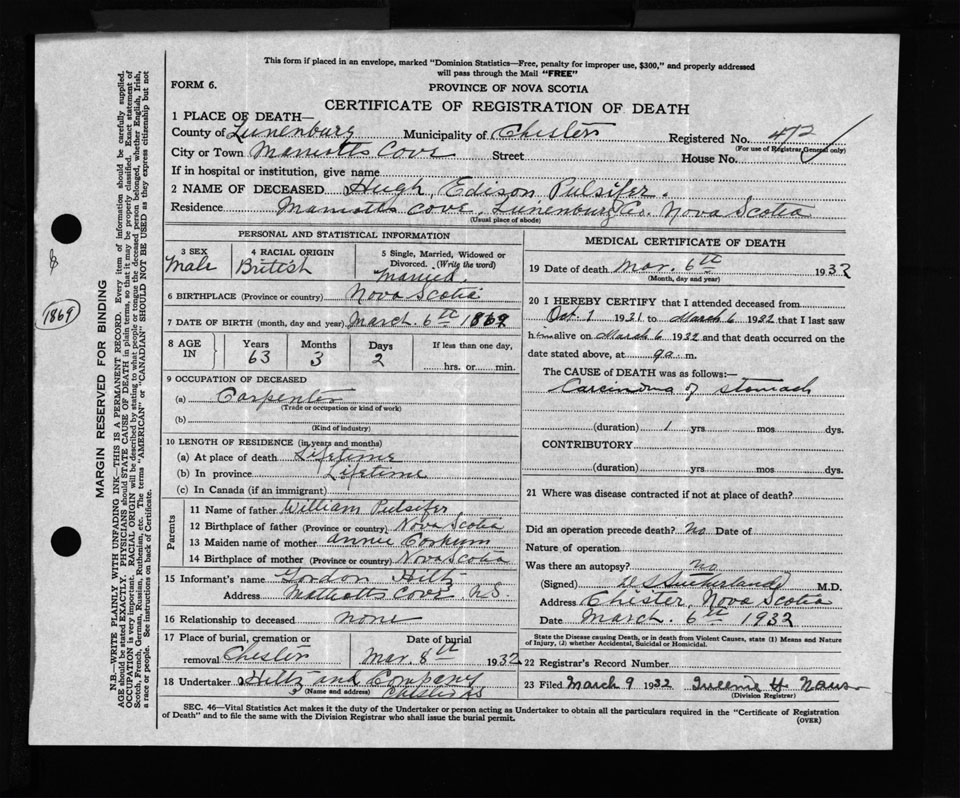 This form if placed in an envelope, marked "Dominion Statistics—Free, penalty for improper use, $300," and properly addressed
will pass through the Mail "FREE"
FORM 6.
PROVINCE OF NOVA SCOTIA
CERTIFICATE OF REGISTRATION OF DEATH
1 PLACE OF DEATH—
County of Lunenburg Municipality of Chester Registered No. 472
(For use of Registrar General only)
City or Town Marriotts Cove Street House No.
If in hospital or institution, give name
2 NAME OF DECEASED Hugh Edison Pulsifer.
Residence Marriotts Cove, Lunenburg Co. Nova Scotia
(Usual place of abode)
PERSONAL AND STATISTICAL INFORMATION
3 SEX Male
4 RACIAL ORIGIN British
5 Single, Married, Widowed or
Divorced. (Write the word)
Married.
6 BIRTHPLACE (Province or country) Nova Scotia
7 DATE OF BIRTH (month, day and year) March. 6th 1869
8 AGE IN Years Months Days If less than one day,
63 3 2 hrs. or min.
9 OCCUPATION OF DECEASED
(a) Carpenter
(Trade or occupation or kind of work)
(b)
(Kind of industry)
10 LENGTH OF RESIDENCE (in years and months)
(a) At place of death Lifetime
(b) In province Lifetime
(c) In Canada (if an immigrant)
Parents
11 Name of father William Pulsifer
12 Birthplace of father (Province or country) Nova Scotia
13 Maiden name of mother Annie Corkum
14 Birthplace of mother (Province or country) Nova Scotia
15 Informant's name Gordon Hiltz
Address Cove N.S.
16 Relationship to deceased none
17 Place of burial, cremation or Date of burial
removal Chester Mar. 8th 1932
18 Undertaker Hiltz and Company
(Name and address)
MEDICAL CERTIFICATE OF DEATH
19 Date of death Mar. 6th 1932
(Month, day and year)
20 I HEREBY CERTIFY that I attended deceased from
Oct 1 1931 to March 6 1932 that I last saw
him alive on March 6 1932 and that death occurred on the
date stated above, at 9 a. m.
The CAUSE of DEATH was as follows:—
Carcinoma of stomach
(duration) 1 yrs mos dys.
CONTRIBUTORY
(duration) yrs. mos. dys.
21 Where was disease contracted if not at place of death?
Did an operation precede death? no Date of
Nature of operation
Was there an autopsy? no
(Signed) Sutherland M.D.
Address Chester, Nova Scotia
Date March. 6th 1932
State the Disease causing Death, or in death from Violent Causes, state (1) Means and Nature
of Injury, (2) whether Accidental, Suicidal or Homicidal.
22 Registrar's Record Number
23 Filed March 9 1932
(Division Registrar)
SEC. 46—Vital Statistics Act makes it the duty of the Undertaker or person acting as Undertaker to obtain all the particulars required in the "Certificate of Registration
of Death" and to file the same with the Division Registrar who shall issue the burial permit.
(OVER)
1869
MARGIN RESERVED FOR BINDING
N.B.—WRITE PLAINLY WITH UNFADING INK—THIS IS A PERMANENT RECORD. Every item of information should be carefully supplied.
AGE should be stated EXACTLY. PHYSICIANS should STATE CAUSE OF DEATH in plain terms, so that it may be properly classified. Exact statement of
OCCUPATION is very important. RACIAL ORIGIN will be described by stating to what people or tongue the deceased person belonged, whether English, Irish,
Scotch, French, German, Russian, Ruthenian, etc. The terms "AMERICAN" or "CANADIAN" SHOULD NOT BE USED as they express citizenship but not
a race or people. See instructions on back of Certificate.